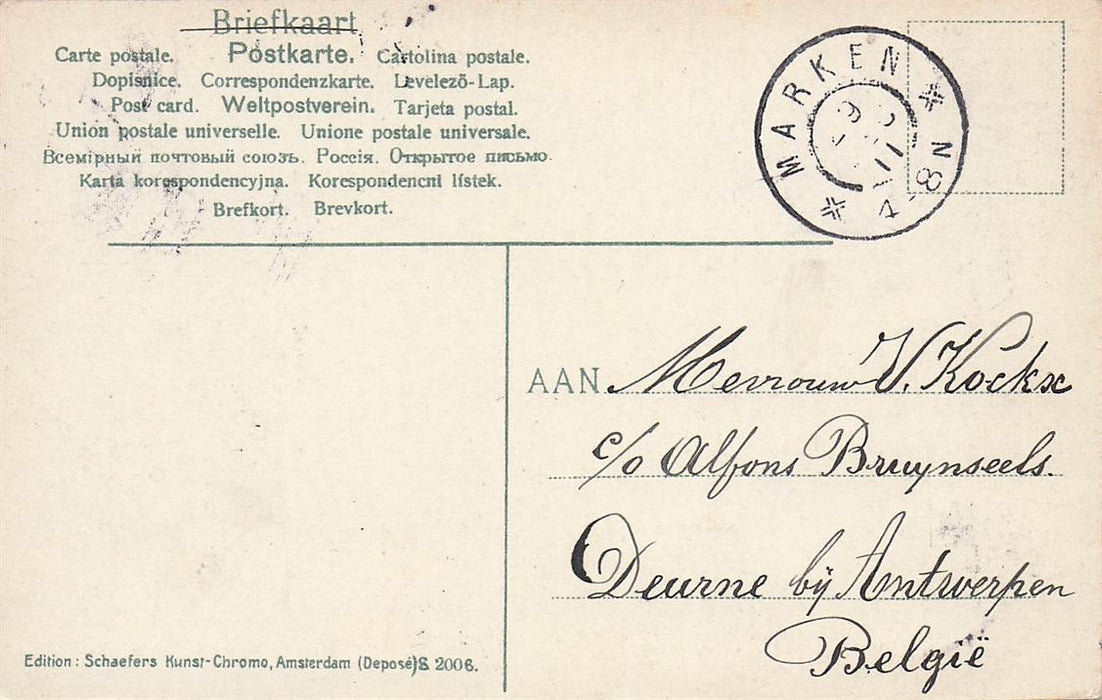 Briefkaart
Carte postale. Postkarte. Cartolina postale.
Dopisnice. Correspondenzkarte. Levelező-Lap.
Post card. Weltpostverein. Tarjeta postal.
Union postale universelle. Unione postale universale.
Всемірный почтовый союзъ. Россія. Открытое письмо.
Karta korespondencyjna. Korespondencní lístek.
Brefkort. Brevkort.
MARKEN
4-8N
AAN Mevrouw V. Kockx
c/o Alfons Bruynseels.
Deurne bÿ Antwerpen
België
Edition: Schaefers Kunst-Chromo, Amsterdam (Deposé) S 2006.